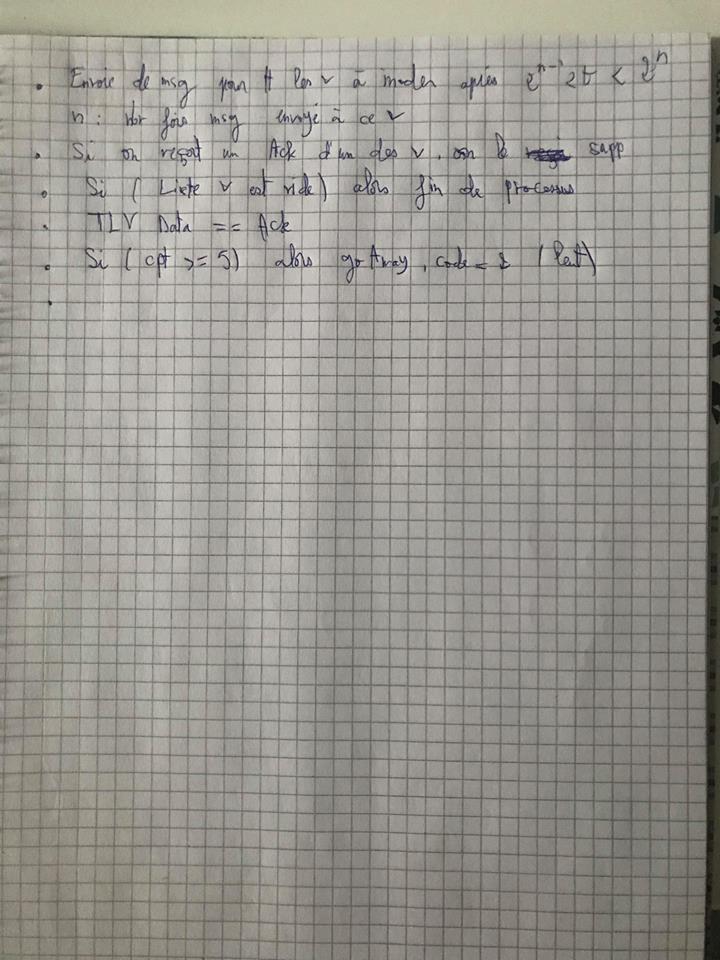 • Envoie de msg pour tt les v à inonder après 2^n-1 < t < 2^n
n : nbr fois msg envoyé à ce v
• Si on reçoit un Ack d'un des v, on le supp
• Si ( Liste v est vide ) alors fin de processus
• TLV Data == Ack
• Si ( cpt >= 5 ) alors goAway, code = 2
•